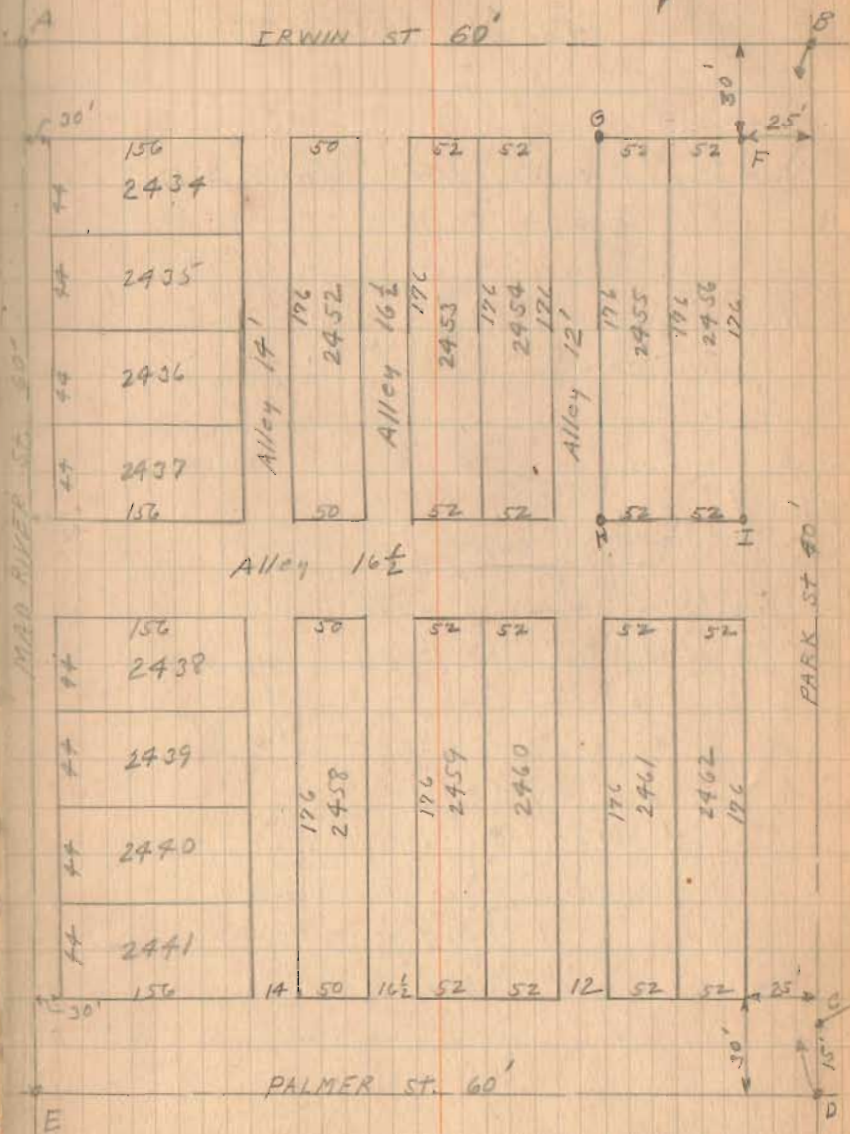 A
IRWIN ST 60'
B
30'
30'
G
25'
F
156
50
52 52
52 52
44
2434
44
2435
44
2436
44
2437
156
Alley 14'
176
2452
50
Alley 16½
176
2453
176
2454
176
52 52
Alley 12'
176
2455
176
2456
176
52 52
I
MAD RIVER St. 60'
Alley 16½
PARK St 40'
156
50
52 52
52 52
44
2438
44
2439
44
2440
44
2441
176
2458
176
2459
2460
176
2461
2462
176
156
14
50
16½
52
52
12
52
52
25
C
30'
30'
15'
PALMER St. 60'
E
D